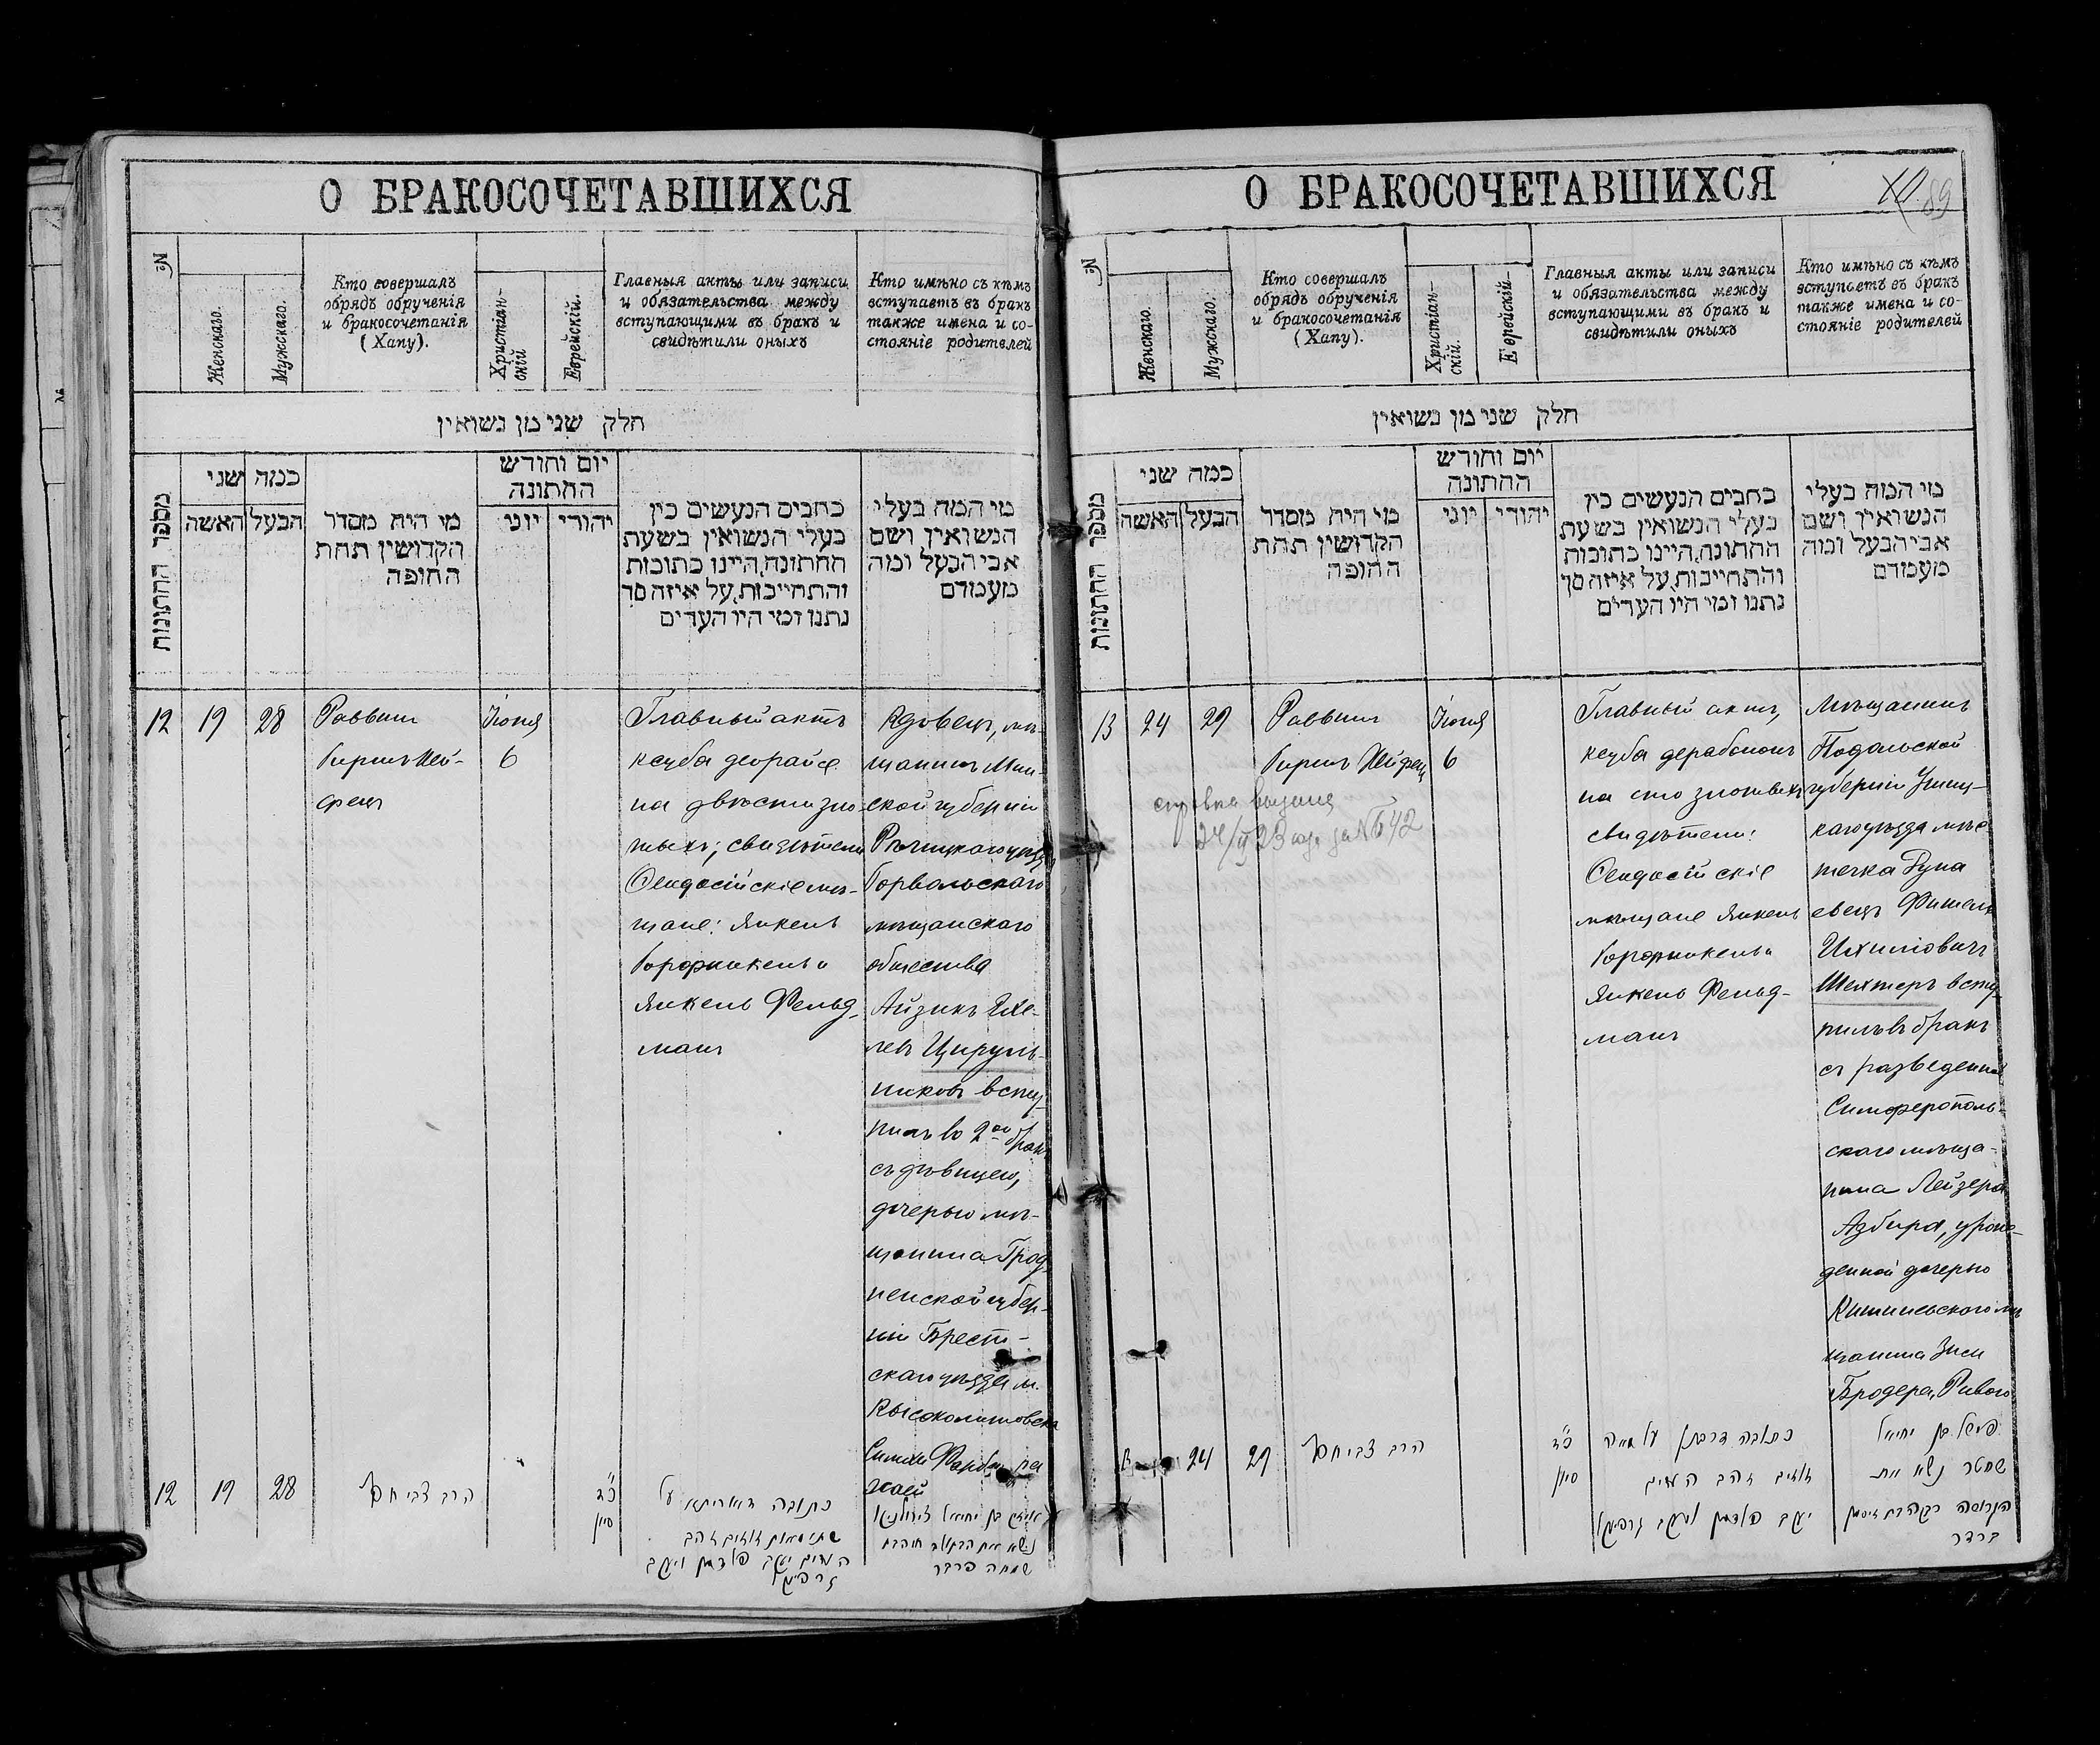 О БРАКОСОЧЕТАВШИХСЯ
№
Женскаго.
Мужскаго.
Кто совершалъ
обрядъ обрученія
и бракосочетанія
(Хапу).
Христіан-
скій
Еврейскій.
Главныя акты или записи
и обязательства между
вступающими въ бракъ и
свидѣтили оныхъ
Кто имѣно съ кѣмъ
вступаетъ въ бракъ
также имена и со-
стояніе родителей
חלק שני מן נשואין
מספר החתונות
כמה שני
האשה
הבעל
מי היה מסדר
הקדושין תחת
החופה
יום וחודש
החתונה
יוני
יהודי
כתבים הנעשים בין
בעלי הנשואין בשעת
החתונה, היינו כתובות
והתחייבות, על איזה סך
נתנו ומי היו העדים
מי המה בעלי
הנשואין ושם
אבי הבעל ומה
מעמדם
12
19
28
Раввинъ
Гиршъ Хей-
фецъ
Іюня
6
Главный актъ
ксуба деорайсе
на двѣсти зло-
тыхъ; свидѣтели
Ѳеодосійскіе мѣ-
щане: Янкель
Горфинкель и
Янкель Фельд-
манъ
Вдовецъ, мѣ-
щанинъ Мин-
ской губерніи
Рѣчицкаго уѣзда
Горвальскаго
мѣщанскаго
общества
Айзикъ Ихе-
левъ Цируль-
никовъ всту-
пилъ во 2ой бракъ
съ дѣвицею,
дочерью мѣ-
щанина Грод-
ненской губер-
ніи Брест-
скаго уѣзда м.
Высоколитовска
Симхи Фарбера
12
19
28
הרב צבי חפץ
כ״ד
סיון
כתובה דאורייתא על
מאתים זהב
העדים יעקב פעלדמן ויעקב
גרפינקל
אייזק בן יחיאל צירולניקאוו
נשא את הבתולה
שמחה פרבר
О БРАКОСОЧЕТАВШИХСЯ
89
№
Женскаго.
Мужскаго.
Кто совершалъ
обрядъ обрученія
и бракосочетанія
(Хапу).
Христіан-
скій.
Еврейскій-
Главныя акты или записи
и обязательства между
вступающими въ бракъ и
свидѣтили оныхъ
Кто имѣно съ кѣмъ
вступаетъ въ бракъ
также имена и со-
стояніе родителей
חלק שני מן נשואין
מספר החתונות
כמה שני
האשה
הבעל
מי היה מסדר
הקדושין תחת
החופה
יום וחודש
החתונה
יוני
יהודי
כתבים הנעשים בין
בעלי הנשואין בשעת
החתונה, היינו כתובות
והתחייבות, על איזה סך
נתנו ומי היו העדים
מי המה בעלי
הנשואין ושם
אבי הבעל ומה
מעמדם
13
24
29
Раввинъ
Гиршъ Хейфецъ
справка выдана
Іюня
6
Главный актъ,
ксуба дерабононъ
на сто злотыхъ
свидѣтели:
Ѳеодосійскіе
мѣщане Янкель
Горфинкель и
Янкель Фельд-
манъ
Мѣщанинъ
Подольской
губерніи Ушиц-
каго уѣзда мѣс-
течка Дуна
евецъ Фишель
Ихиловичъ
Шехтеръ всту-
пилъ въ бракъ
съ разведенной
Симферополь-
скаго мѣща-
нина Лейзера
Азбиля, урож-
денной дочерью
Кишиневскаго мѣ-
щанина Зиси
Бродера, Ривою
24
29
הרב צבי חפץ
כ״ד
סיון
כתובה דרבנן על מאה
זהב העדים
יעקב פעלדמן ויעקב גרפינקל
פישל בן יחיאל
שחטר נשא את
הגרושה רבקה בת זיסמן
ברדר